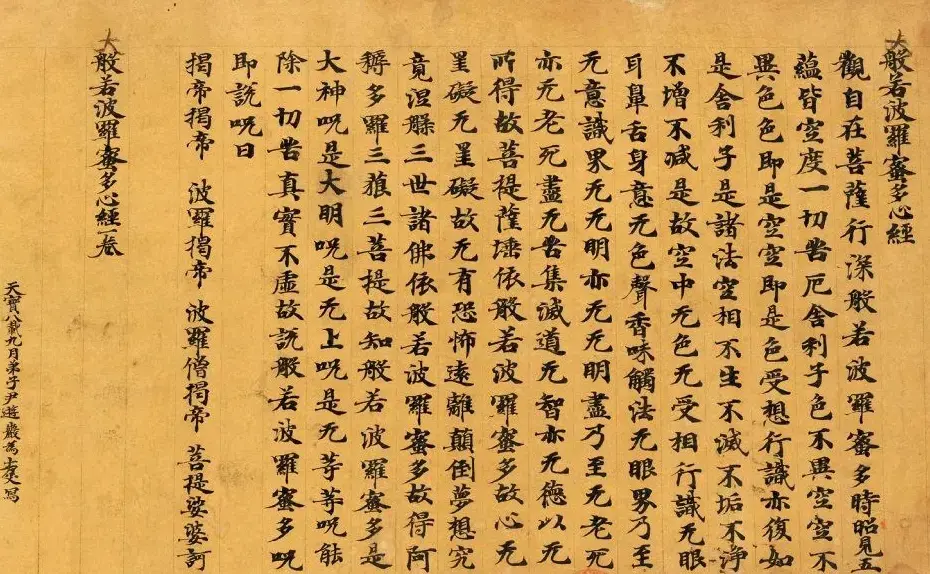 大般若波羅蜜多心經
觀自在菩薩行深般若波羅蜜多時昭見五
蘊皆空度一切苦厄舍利子色不異空空不
異色色即是空空即是色受想行識亦復如
是舍利子是諸法空相不生不滅不垢不淨
不增不減是故空中无色无受相行識无眼
耳鼻舌身意无色聲香味觸法无眼界乃至
无意識界无无明亦无无明盡乃至无老死
亦无老死盡无苦集滅道无智亦无德以无
所得故菩提薩埵依般若波羅蜜多故心无
罣礙无罣礙故无有恐怖遠離顛倒夢想究
竟涅槃三世諸佛依般若波羅蜜多故得阿
耨多羅三藐三菩提故知般若波羅蜜多是
大神呪是大明呪是无上呪是无等等呪能
除一切苦真實不虛故說般若波羅蜜多呪
即說呪曰
揭帝揭帝 波羅揭帝 波羅僧揭帝 菩提娑婆訶
大般若波羅蜜多心經一卷
天寶八載九月弟子尹遊巖為寫